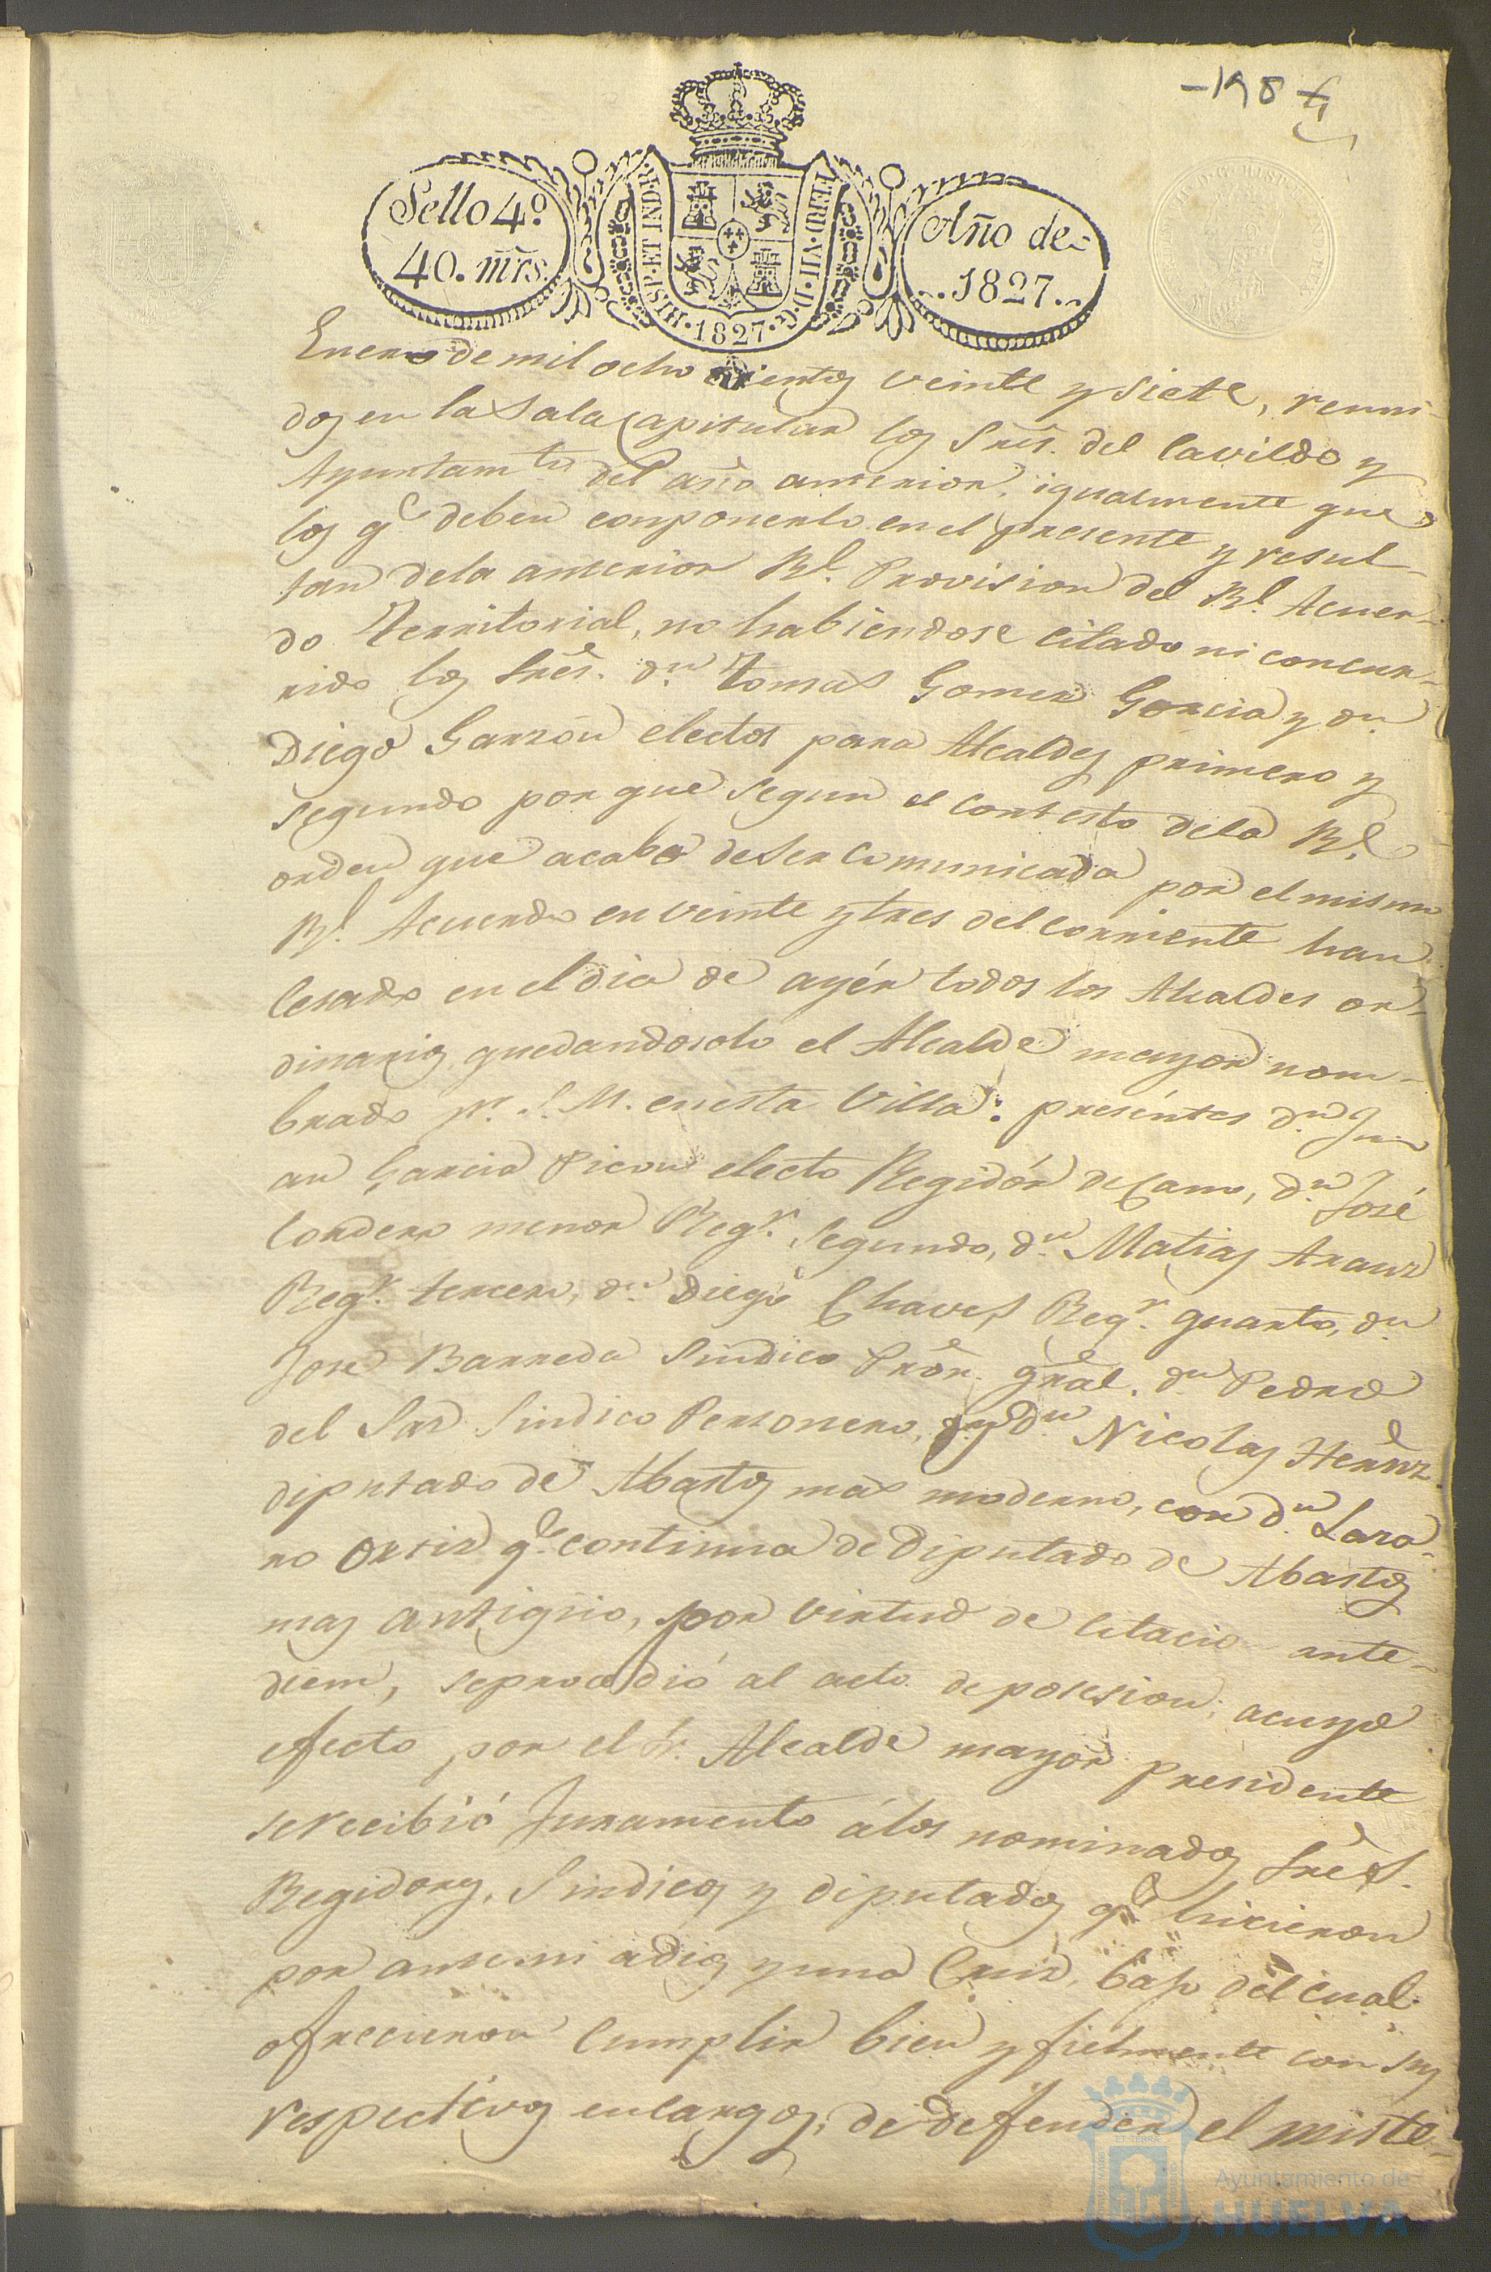 -198
Sello 4º
40. mrs.
HISP. ET IND. R.
FERD. VII. D. G.
1827
Año de
1827.
Enero de mil ocho cientos veinte y siete, reuni-
dos en la Sala Capitular los Sres. del Cavildo y
Ayuntamto. del año anterior, igualmente que
los qe deben componerlo en el presente y resul-
tan dela anterior Rl. Provision del Rl. Acuer-
do Territorial, no habiendose citado ni concur-
rido los Sres. dn. Tomas Gomez Garcia y dn.
Diego Garzon electos para Alcaldes primero y
segundo por que segun el contesto dela Rl.
orden que acaba de ser comunicada por el mismo
Rl. Acuerdo en veinte y tres del corriente han
cesado en el dia de ayér todos los Alcaldes or-
dinarios, quedando solo el Alcalde mayor nom-
brado pr. S. M. en esta Villa: preséntes dn. Ju-
an Garcia Picon electo Regidór decano, dn. José
Cordero menor Regr. Segundo, dn. Matias Aranz
Regr. tercero, dn. Diego Chaves Regr. quarto, dn.
José Barreda Sindico Prór. gral. dn. Pedro
del Saz Sindico Personero, y dn. Nicolas Hernz.
diputado de Abastos mas moderno, con dn. Laza-
ro Ortiz qe. continua de Diputado de Abastos
mas antiguo, por virtud de citacio ante-
diem, se procedió al acto de posesion; a cuyo
efecto por el Sr. Alcalde mayor presidente
se recibió Juramento á los nominados Sres.
Regidores, Sindicos y diputados qe hicieron
por ante mi a Dios y una Cruz, bajo del cual
ofrecieron cumplir bien y fielmente con sus
respectivos encargos, de defender el miste-
Ayuntamiento de
HUELVA